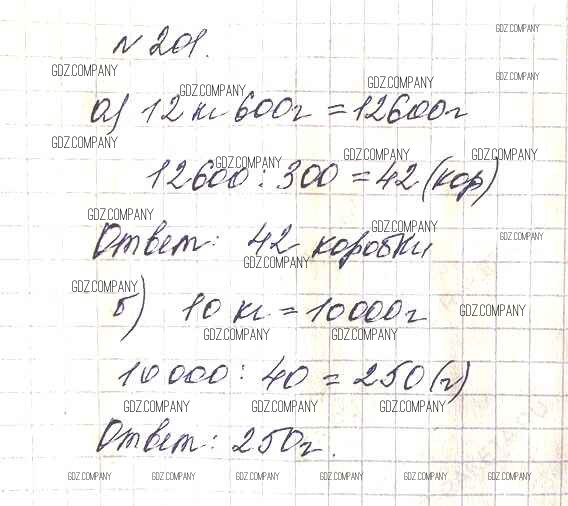 GDZ.COMPANY
№ 201.
GDZ.COMPANY GDZ.COMPANY GDZ.COMPANY GDZ.COMPANY
а) 12 кг 600г = 12600г
GDZ.COMPANY
GDZ.COMPANY GDZ.COMPANY GDZ.COMPANY
12600 : 300 = 42 (кор)
GDZ.COMPANY GDZ.COMPANY GDZ.COMPANY
Ответ: 42 коробки
GDZ.COMPANY
GDZ.COMPANY
б) 10 кг = 10000г GDZ.COMPANY
GDZ.COMPANY GDZ.COMPANY
10 000 : 40 = 250 (г)
GDZ.COMPANY GDZ.COMPANY GDZ.COMPANY
Ответ: 250г.
GDZ.COMPANY GDZ.COMPANY GDZ.COMPANY GDZ.COMPANY GDZ.COMPANY GDZ.COMPANY